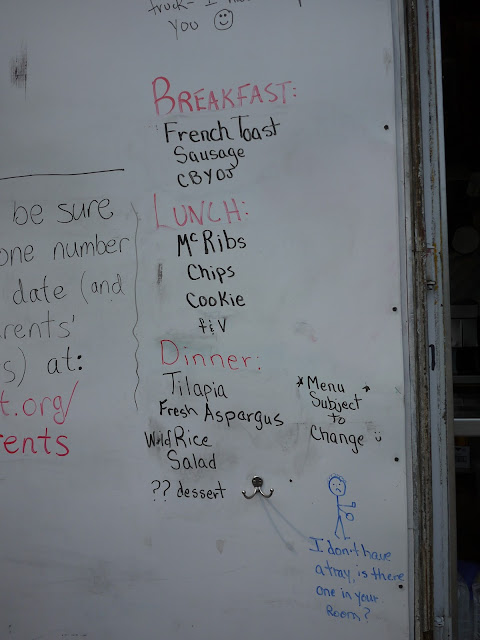 truck- I
you
BREAKFAST:
French Toast
Sausage
CBYOJ
LUNCH:
McRibs
Chips
Cookie
f&V
Dinner:
Tilapia
Fresh Aspargus
Wild Rice
Salad
?? dessert
*Menu *
Subject
to
Change
be sure
one number
date (and
arents'
s) at:
t.org/
ents
I don't have
a tray, is there
one in your
Room?